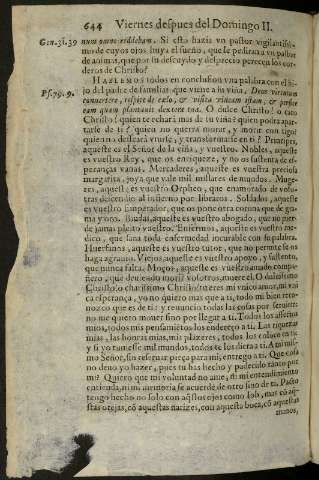 644 Viernes despues del Domingo II.
Gen. 31. 39
num omne reddebam. Si esto hazia vn pastor vigilantissi-
mo de cuyos ojos huya el sueño, que se pedira a vn pastor
de animas, que por su descuydo y desprecio perecen los cor-
deros de Christo?
HABLEMOS todos en conclusion vna palabra con el hi-
jo del padre de familias que viene a su viña. Deus virtutum
Ps. 79. 9.
convertere, respice de cælo, & vide & visita vineam istam, & perfice
eam quam plantauit dextera tua. O dulce Christo! o caro
Christo! quien te echará mas de tu viña? quien podrá apar-
tarse de ti? quien no querra morar, y morir contigo?
quien no desseará viuirte, y transformarse en ti? Principes,
aqueste es el Señor de la viña, y vuestro. Nobles, aqueste
es vuestro Rey, que os enriqueze, y no os sustenta de es-
peranças vanas. Mercaderes, aqueste es vuestra preciosa
margarita, joya que vale mil millares de mundos. Muge-
res, aqueste es vuestro Orpheo, que enamorado de voso-
tras decendio al infierno por libraros. Soldados, aqueste
es vuestro Emperador, que os pone otra corona que de gra-
ma y oro. Biudas, aqueste es vuestro abogado, que no pier-
de jamas pleito vuestro. Enfermos, aqueste es vuestro me-
dico, que sana toda enfermedad incurable con su palabra.
Huerfanos, aqueste es vuestro tutor, que no permite se os
haga agrauio. Viejos, aqueste es vuestro apoyo, y sustento,
que nunca falta. Moços, aqueste es vuestro mundo compa-
ñero, que deuiendo morir vosotros, muere el. O dulcissimo
Christo! o charissimo Christo! tu eres mi vnico amor, mi vni-
ca esperança, yo no quiero mas que a ti, todo mi bien reco-
nozco que es de ti: y renuncio todas las cosas por seruirte:
no me quiero mouer sino por llegar a ti. Todos los affectos
mios, todos mis pensamiẽtos los endereço a ti. Las riquezas
mias, las honras mias, mis plazeres, todos los coloco en ti:
y si yo tuuiesse mil mundos, todos te los diera a ti. A mi mis-
mo Señor, sin reseruar pieça para mi, entrego a ti. Que cosa
no deuo yo hazer, pues tu has hecho y padecido tanto por
mi? Quiero que mi voluntad no ame, ni mi entendimiento
entienda, ni mi memoria se acuerde de otro sino de ti. Pacto
tengo hecho no solo con aq̃stos ojos como Iob, mas cõ aq̃-
stas orejas, cõ aquestas narizes, con aquesta boca, cõ aquestas
manos,